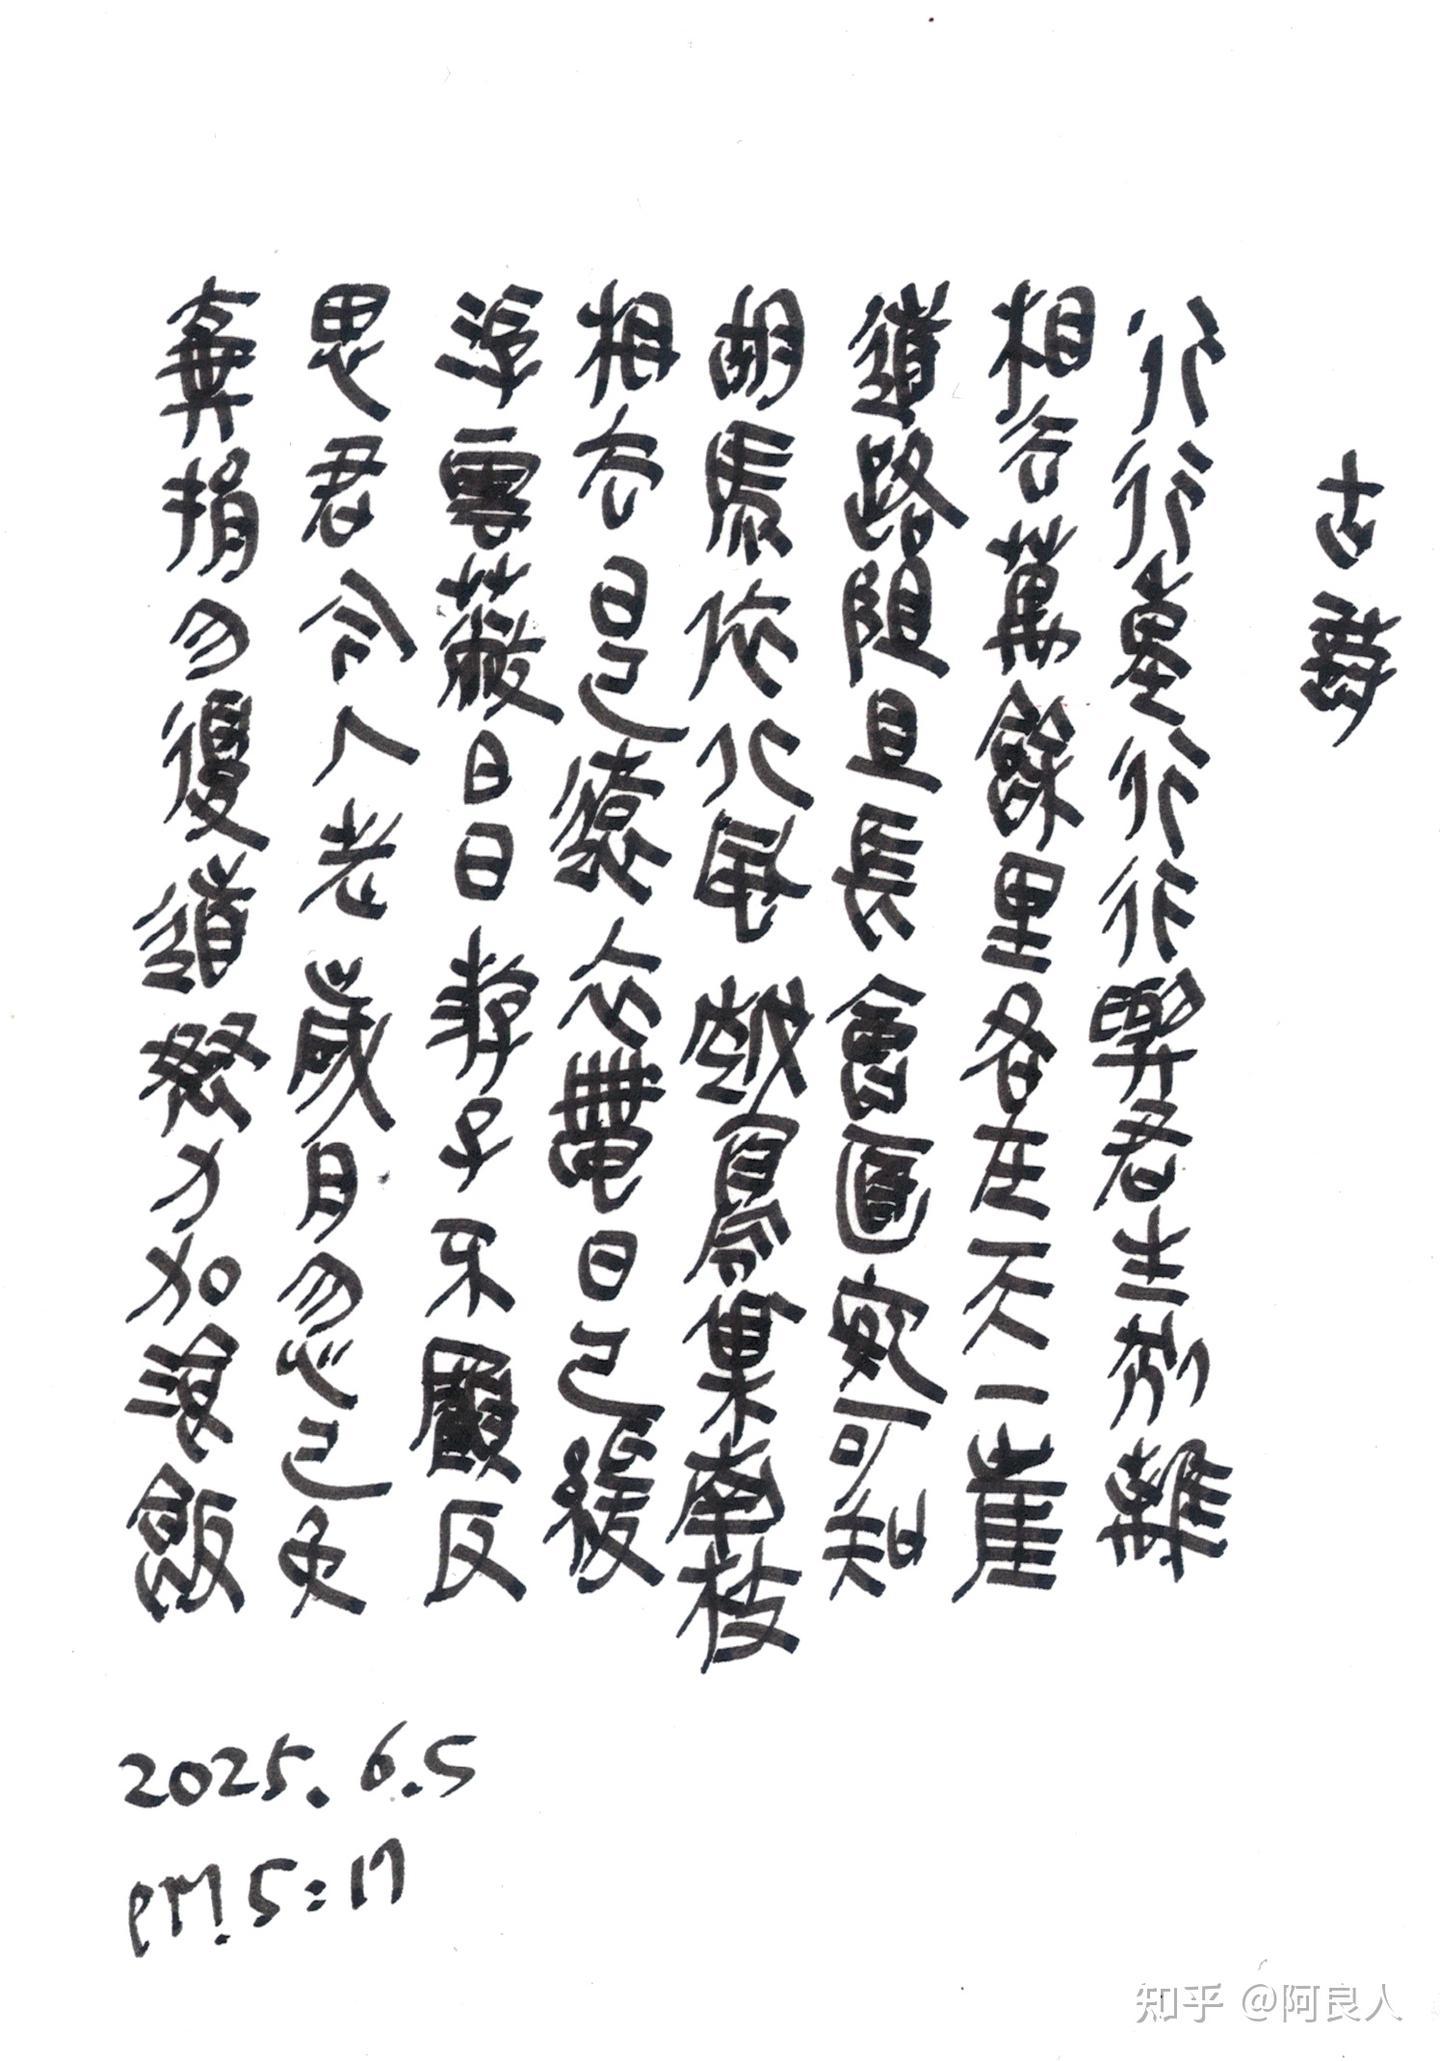 古詩
行行重行行與君生別離
相去萬餘里各在天一崖
道路阻且長會面安可知
胡馬依北風越鳥巢南枝
相去日已遠衣帶日已緩
浮雲蔽白日遊子不顧反
思君令人老歲月忽已晚
棄捐勿復道努力加湌飯
2025.6.5
PM 5:17
知乎 @阿良人